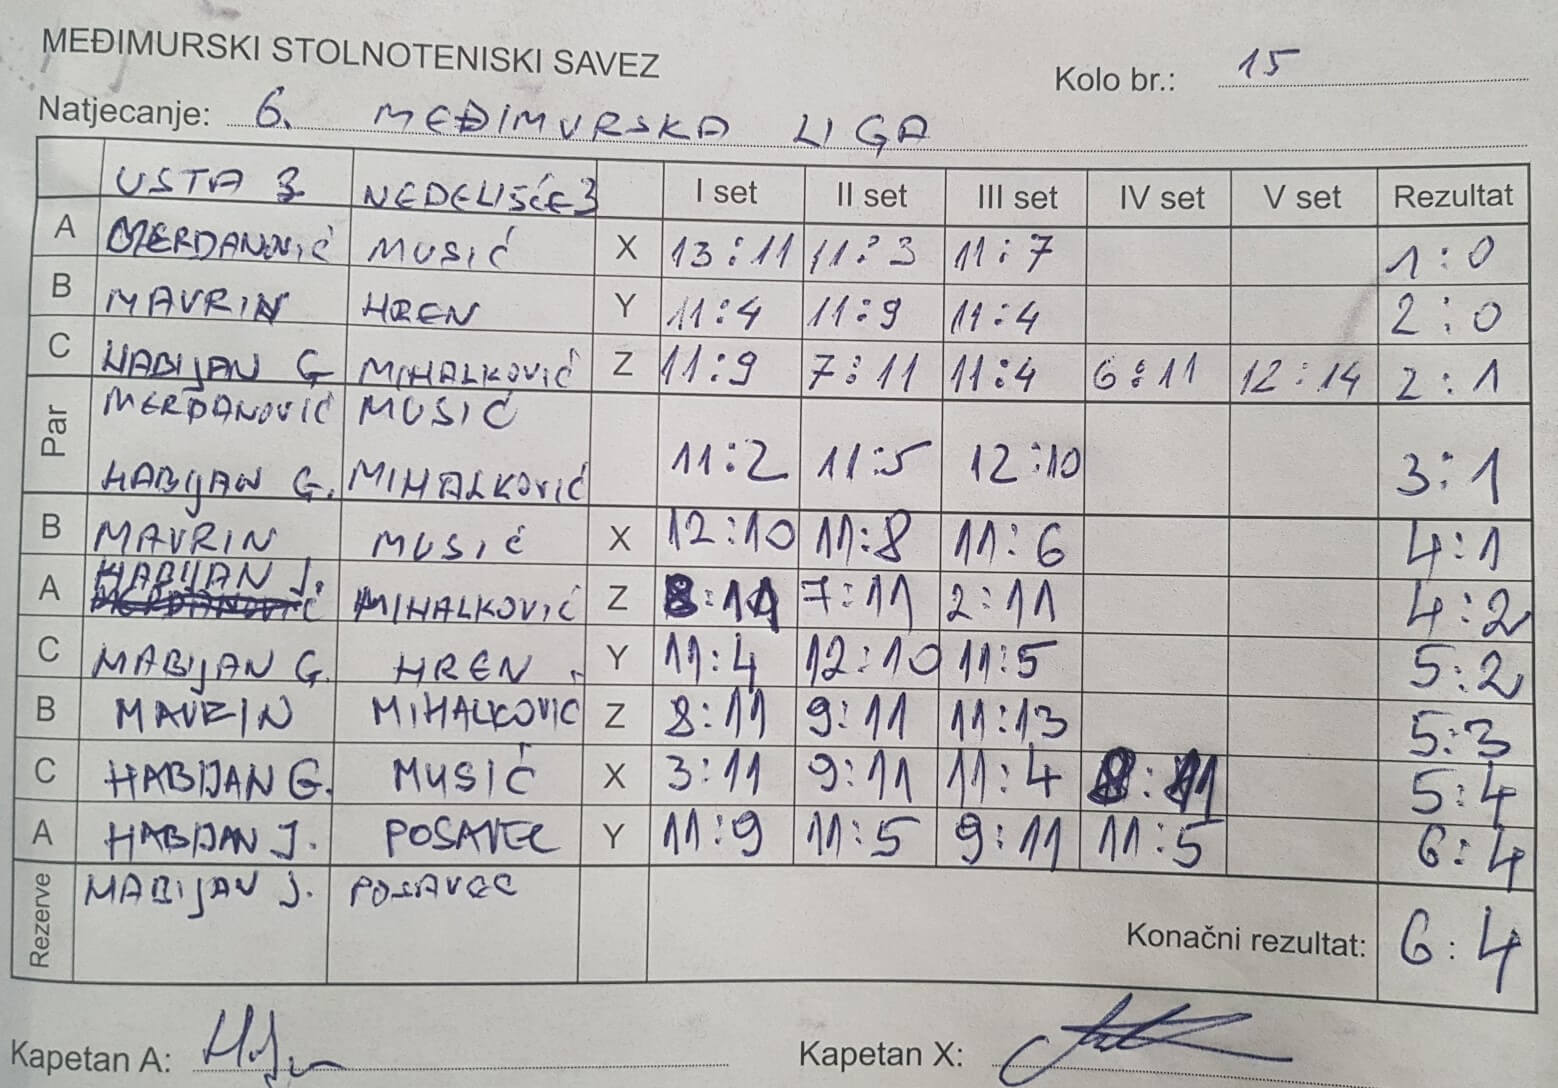 MEĐIMURSKI STOLNOTENISKI SAVEZ
Kolo br.: 15
Natjecanje: 6. MEĐIMURSKA LIGA
USTA 3 NEDELIŠĆE 3 I set II set III set IV set V set Rezultat
A MERDANOVIĆ MUSIĆ X 13:11 11:3 11:7 1:0
B MAVRIN HREN Y 11:4 11:9 11:4 2:0
C HABIJAN G MIHALKOVIĆ Z 11:9 7:11 11:4 6:11 12:14 2:1
Par MERDANOVIĆ MUSIĆ
HABIJAN G. MIHALKOVIĆ 11:2 11:5 12:10 3:1
B MAVRIN MUSIĆ X 12:10 11:8 11:6 4:1
A HABIJAN J. MIHALKOVIĆ Z 8:11 7:11 2:11 4:2
C HABIJAN G. HREN Y 11:4 12:10 11:5 5:2
B MAVRIN MIHALKOVIĆ Z 8:11 9:11 11:13 5:3
C HABIJAN G. MUSIĆ X 3:11 9:11 11:4 8:11 5:4
A HABIJAN J. POSAVEC Y 11:9 11:5 9:11 11:5 6:4
Rezerve HABIJAN J. POSAVEC
Konačni rezultat: 6:4
Kapetan A: Kapetan X: